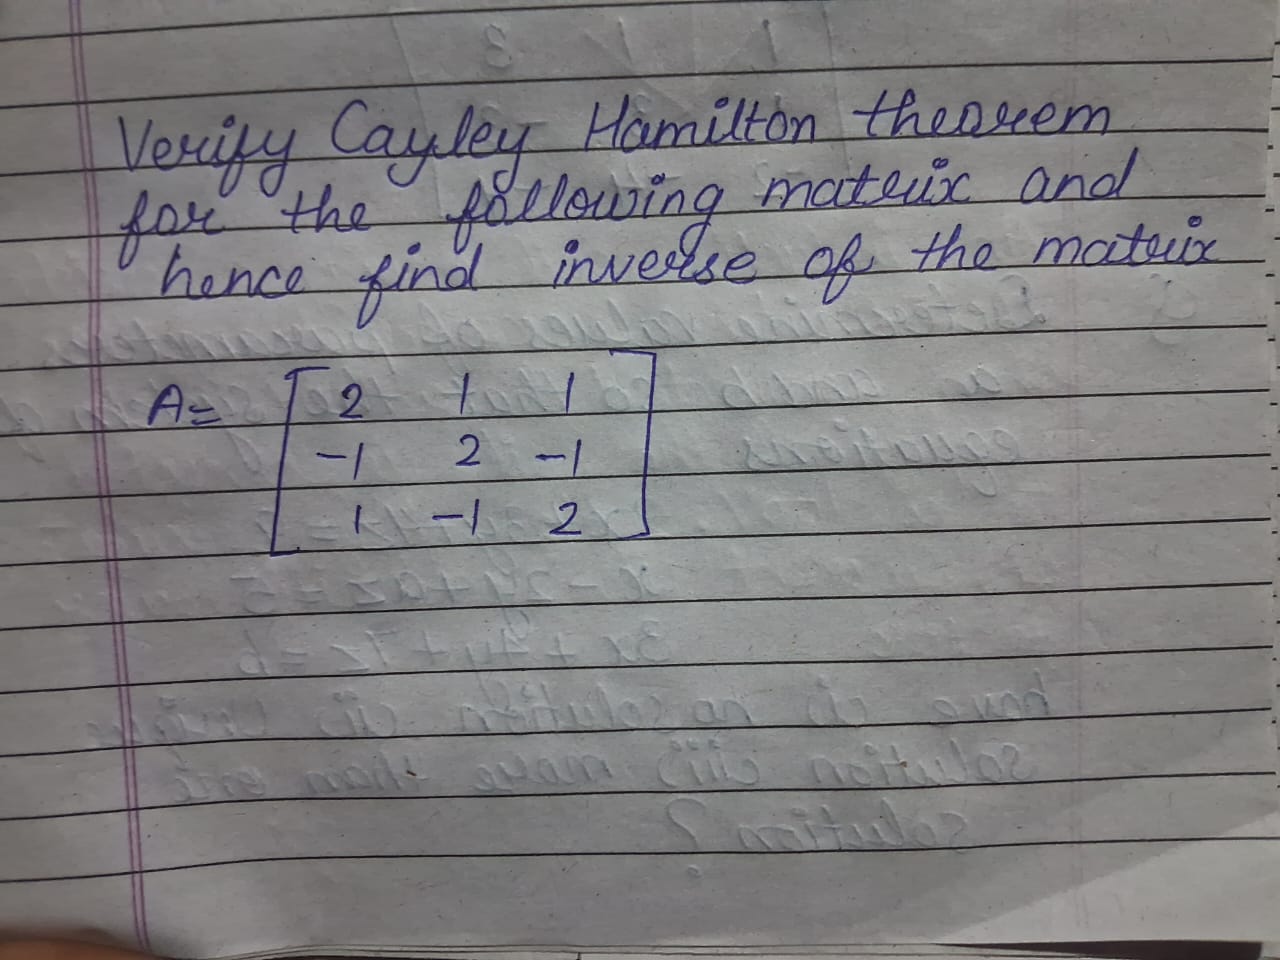 Verify Cayley Hamilton theorem
for the following matrix and
hence find inverse of the matrix
A= [ 2 1 1
-1 2 -1
1 -1 2 ]